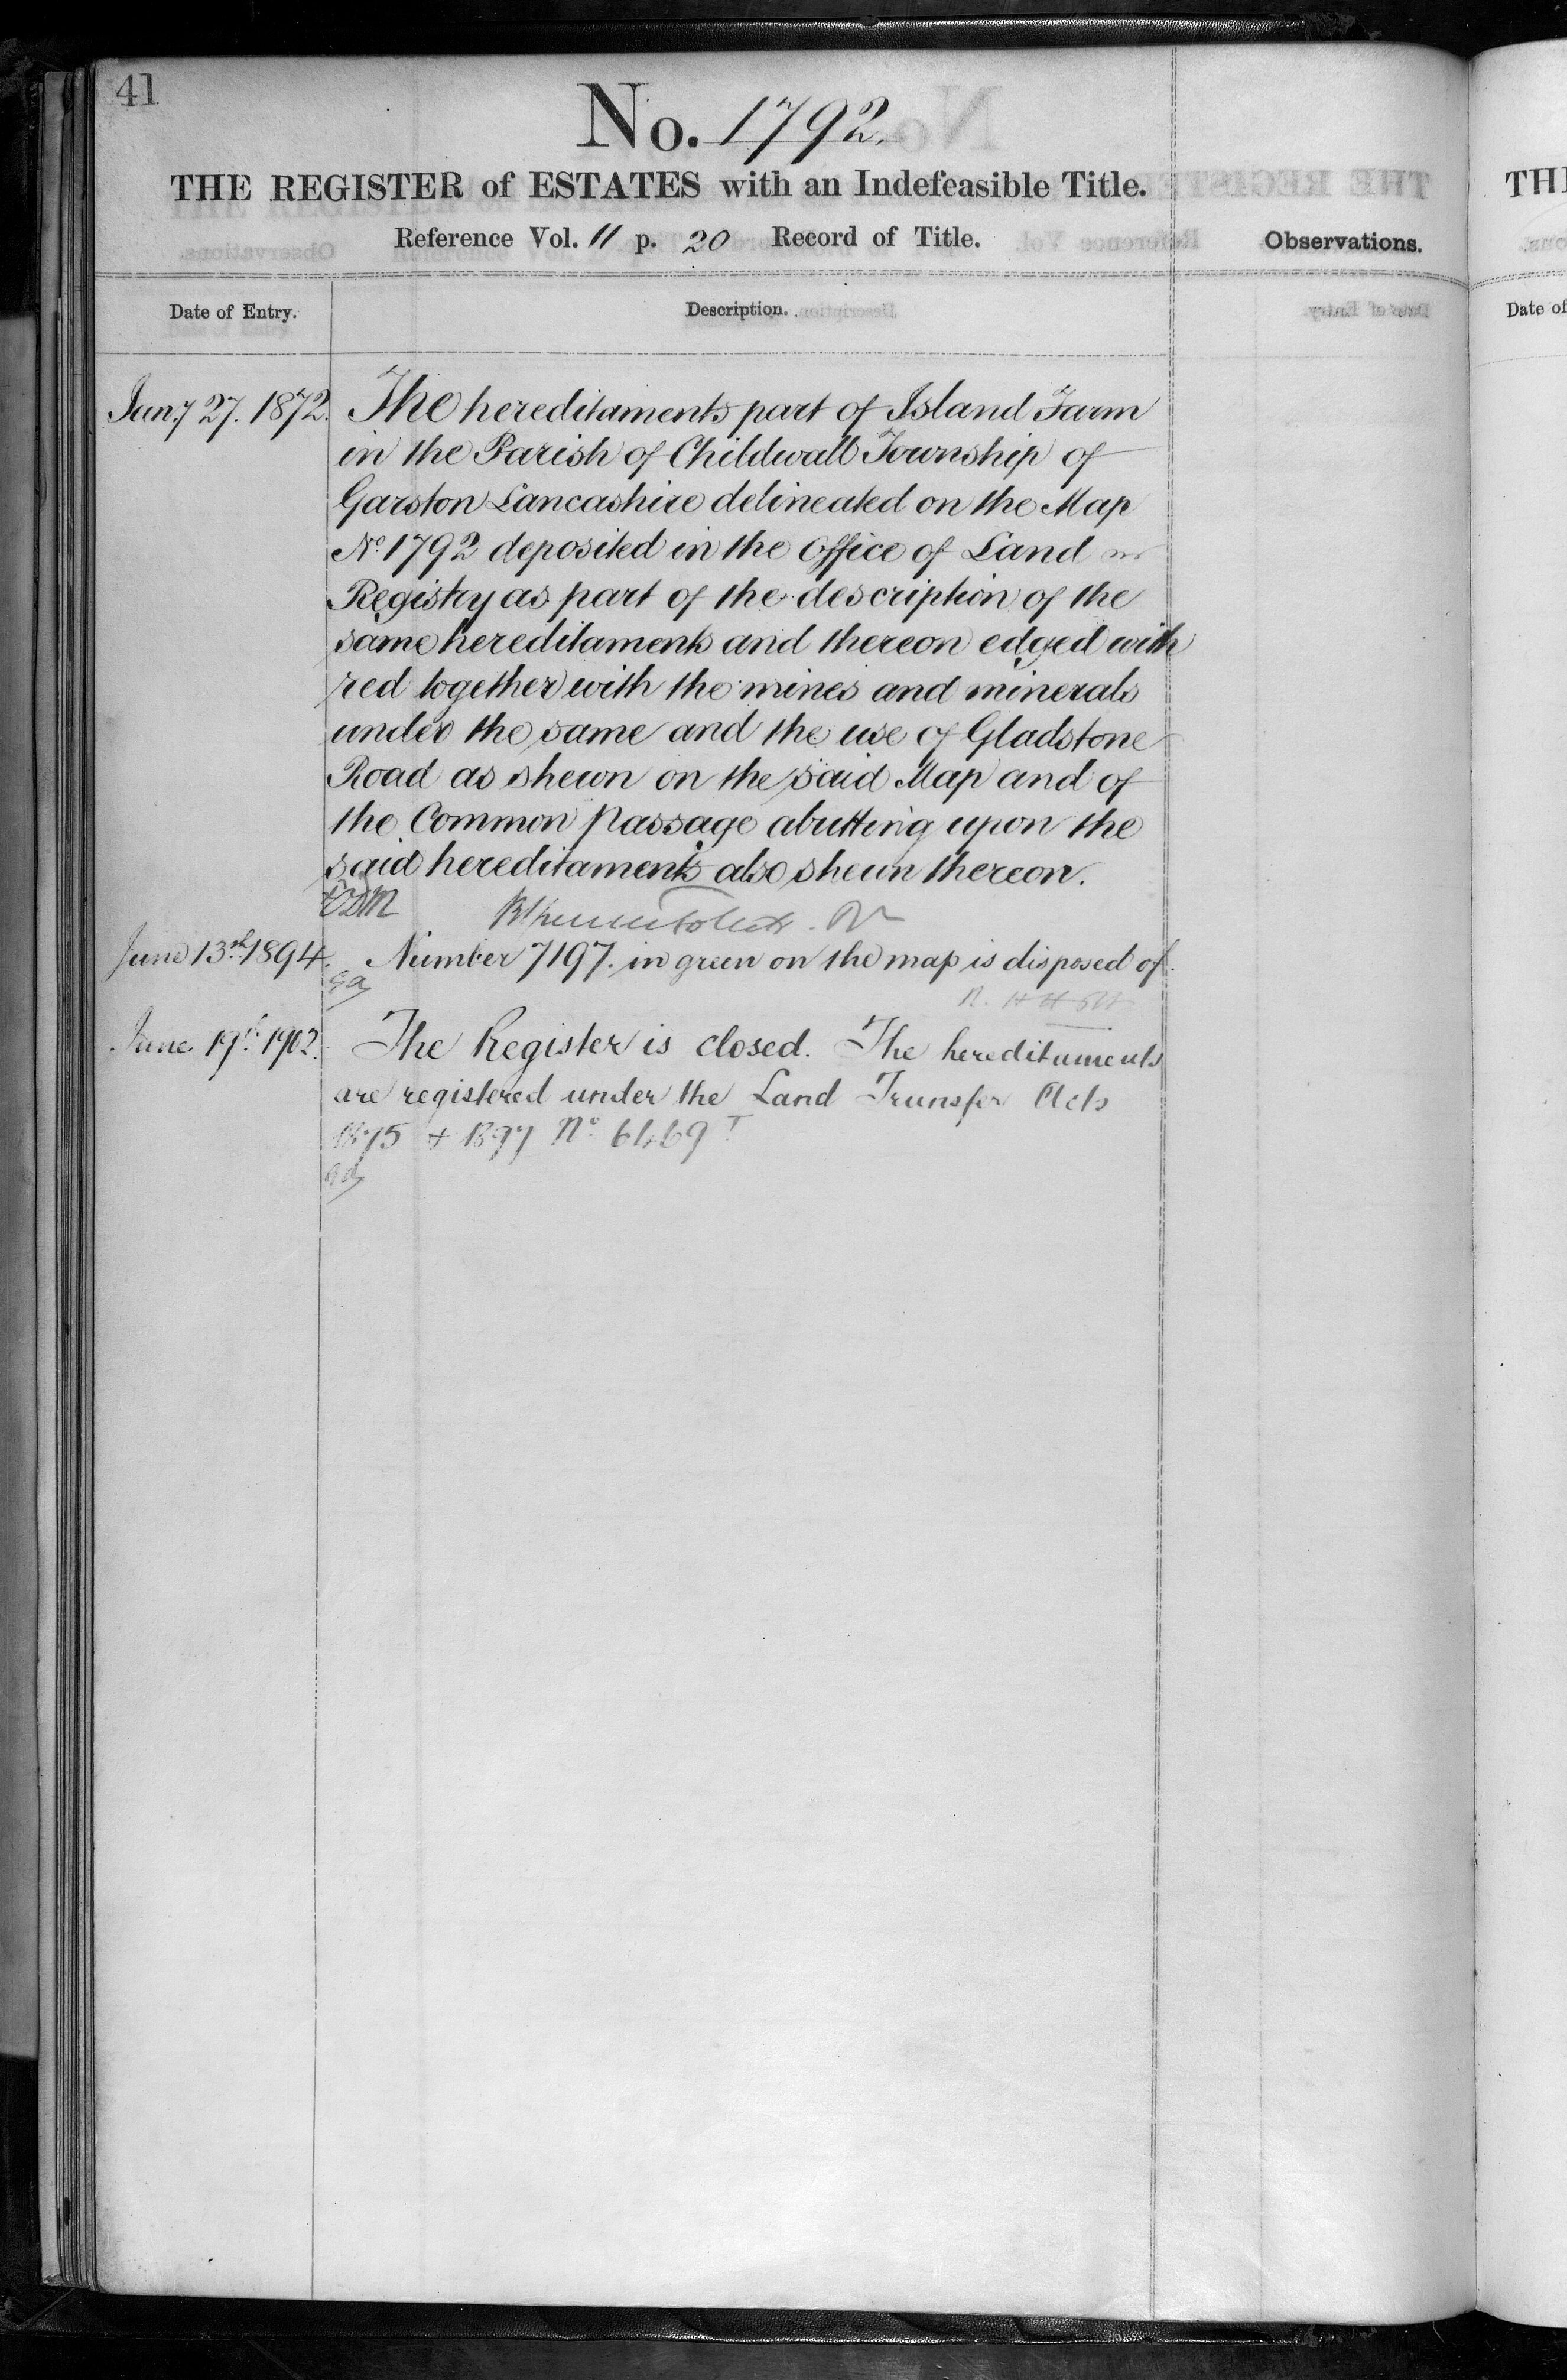 41
No. 1792.
THE REGISTER of ESTATES with an Indefeasible Title.
Reference Vol. 11 p. 20 Record of Title.
Observations.
Date of Entry.
Description.
Jany 27. 1872.
The hereditaments part of Island Farm
in the Parish of Childwall Township of
Garston Lancashire delineated on the Map
No 1792 deposited in the Office of Land
Registry as part of the description of the
same hereditaments and thereon edged with
red together with the mines and minerals
under the same and the use of Gladstone
Road as shewn on the said Map and of
the Common Passage abutting upon the
said hereditaments also shewn thereon.
June 13th 1894.
Number 7197. in green on the map is disposed of.
June 19th 1902.
The Register is closed. The hereditaments
are registered under the Land Transfer Acts
1875 & 1897 No 6469
TH
Date of